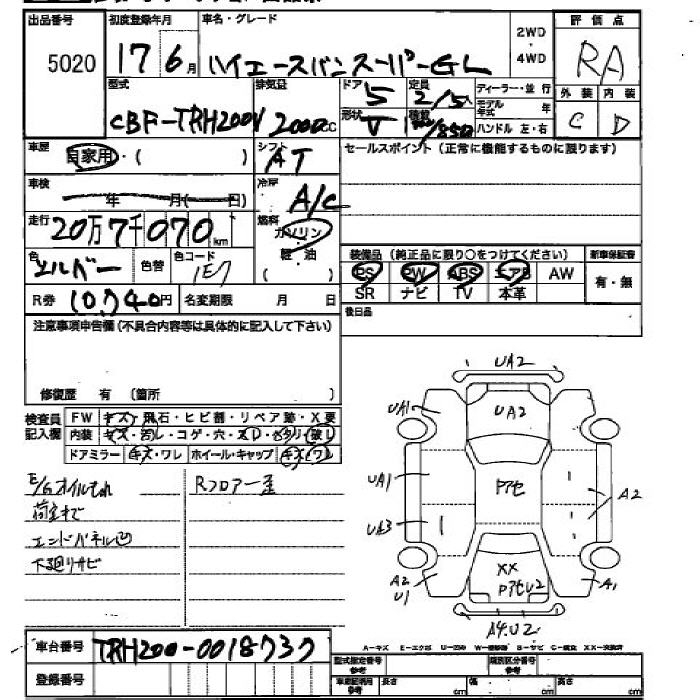 出品番号 初度登録年月 車名・グレード 2WD・4WD 評価点
5020 17 6月 ハイエースバンスーパーGL RA
型式 排気量 ドア 5 定員 2/5人 ディーラー・並行 外装 内装
CBF-TRH200V 2000cc 形状 V 積載 /850 モデル年式 年 C D
ハンドル 左・右
車歴 自家用・( ) シフト AT セールスポイント(正常に機能するものに限ります)
車検 年 月( 日) 冷房 A/C
走行 20万7千070km 燃料 ガソリン
軽・油
( )
色 シルバー 色替 色コード 1E7
装備品(純正品に限り○をつけてください) 新車保証書
PS PW ABS エアB AW 有・無
R券 10,740円 名変期限 月 日 SR ナビ TV 本革
注意事項申告欄(不具合内容等は具体的に記入して下さい) 後日品
修復歴 有 (箇所 )
検査員記入欄 FW キズ・飛石・ヒビ割・リペア跡・X要
内装 キズ・汚レ・コゲ・穴・スレ・ヘタリ・破レ
ドアミラー キズ・ワレ ホイール・キャップ キズ・ワレ
E/Gオイルもれ Rフロアー歪
荷室キズ
エンドパネル凹
下廻りサビ
UA2
UA1 UA2
UA1 Pアセ A2
UA3
A2 U1 XX PアセU2 A1
A4.U2
車台番号 TRH200-0018737
登録番号
A-キズ E-エクボ
型式指定番号 参考 類別区分番号 参考
参考 長さ cm 幅 cm 高さ cm